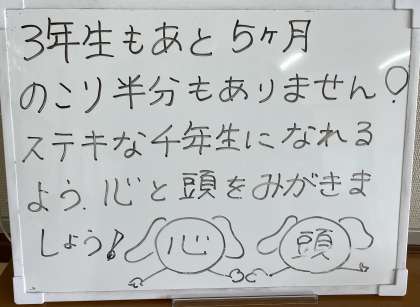 3年生もあと5ヶ月
のこり半分もありません!
ステキな千年生になれる
よう.心と頭をみがきま
しょう!
心 頭